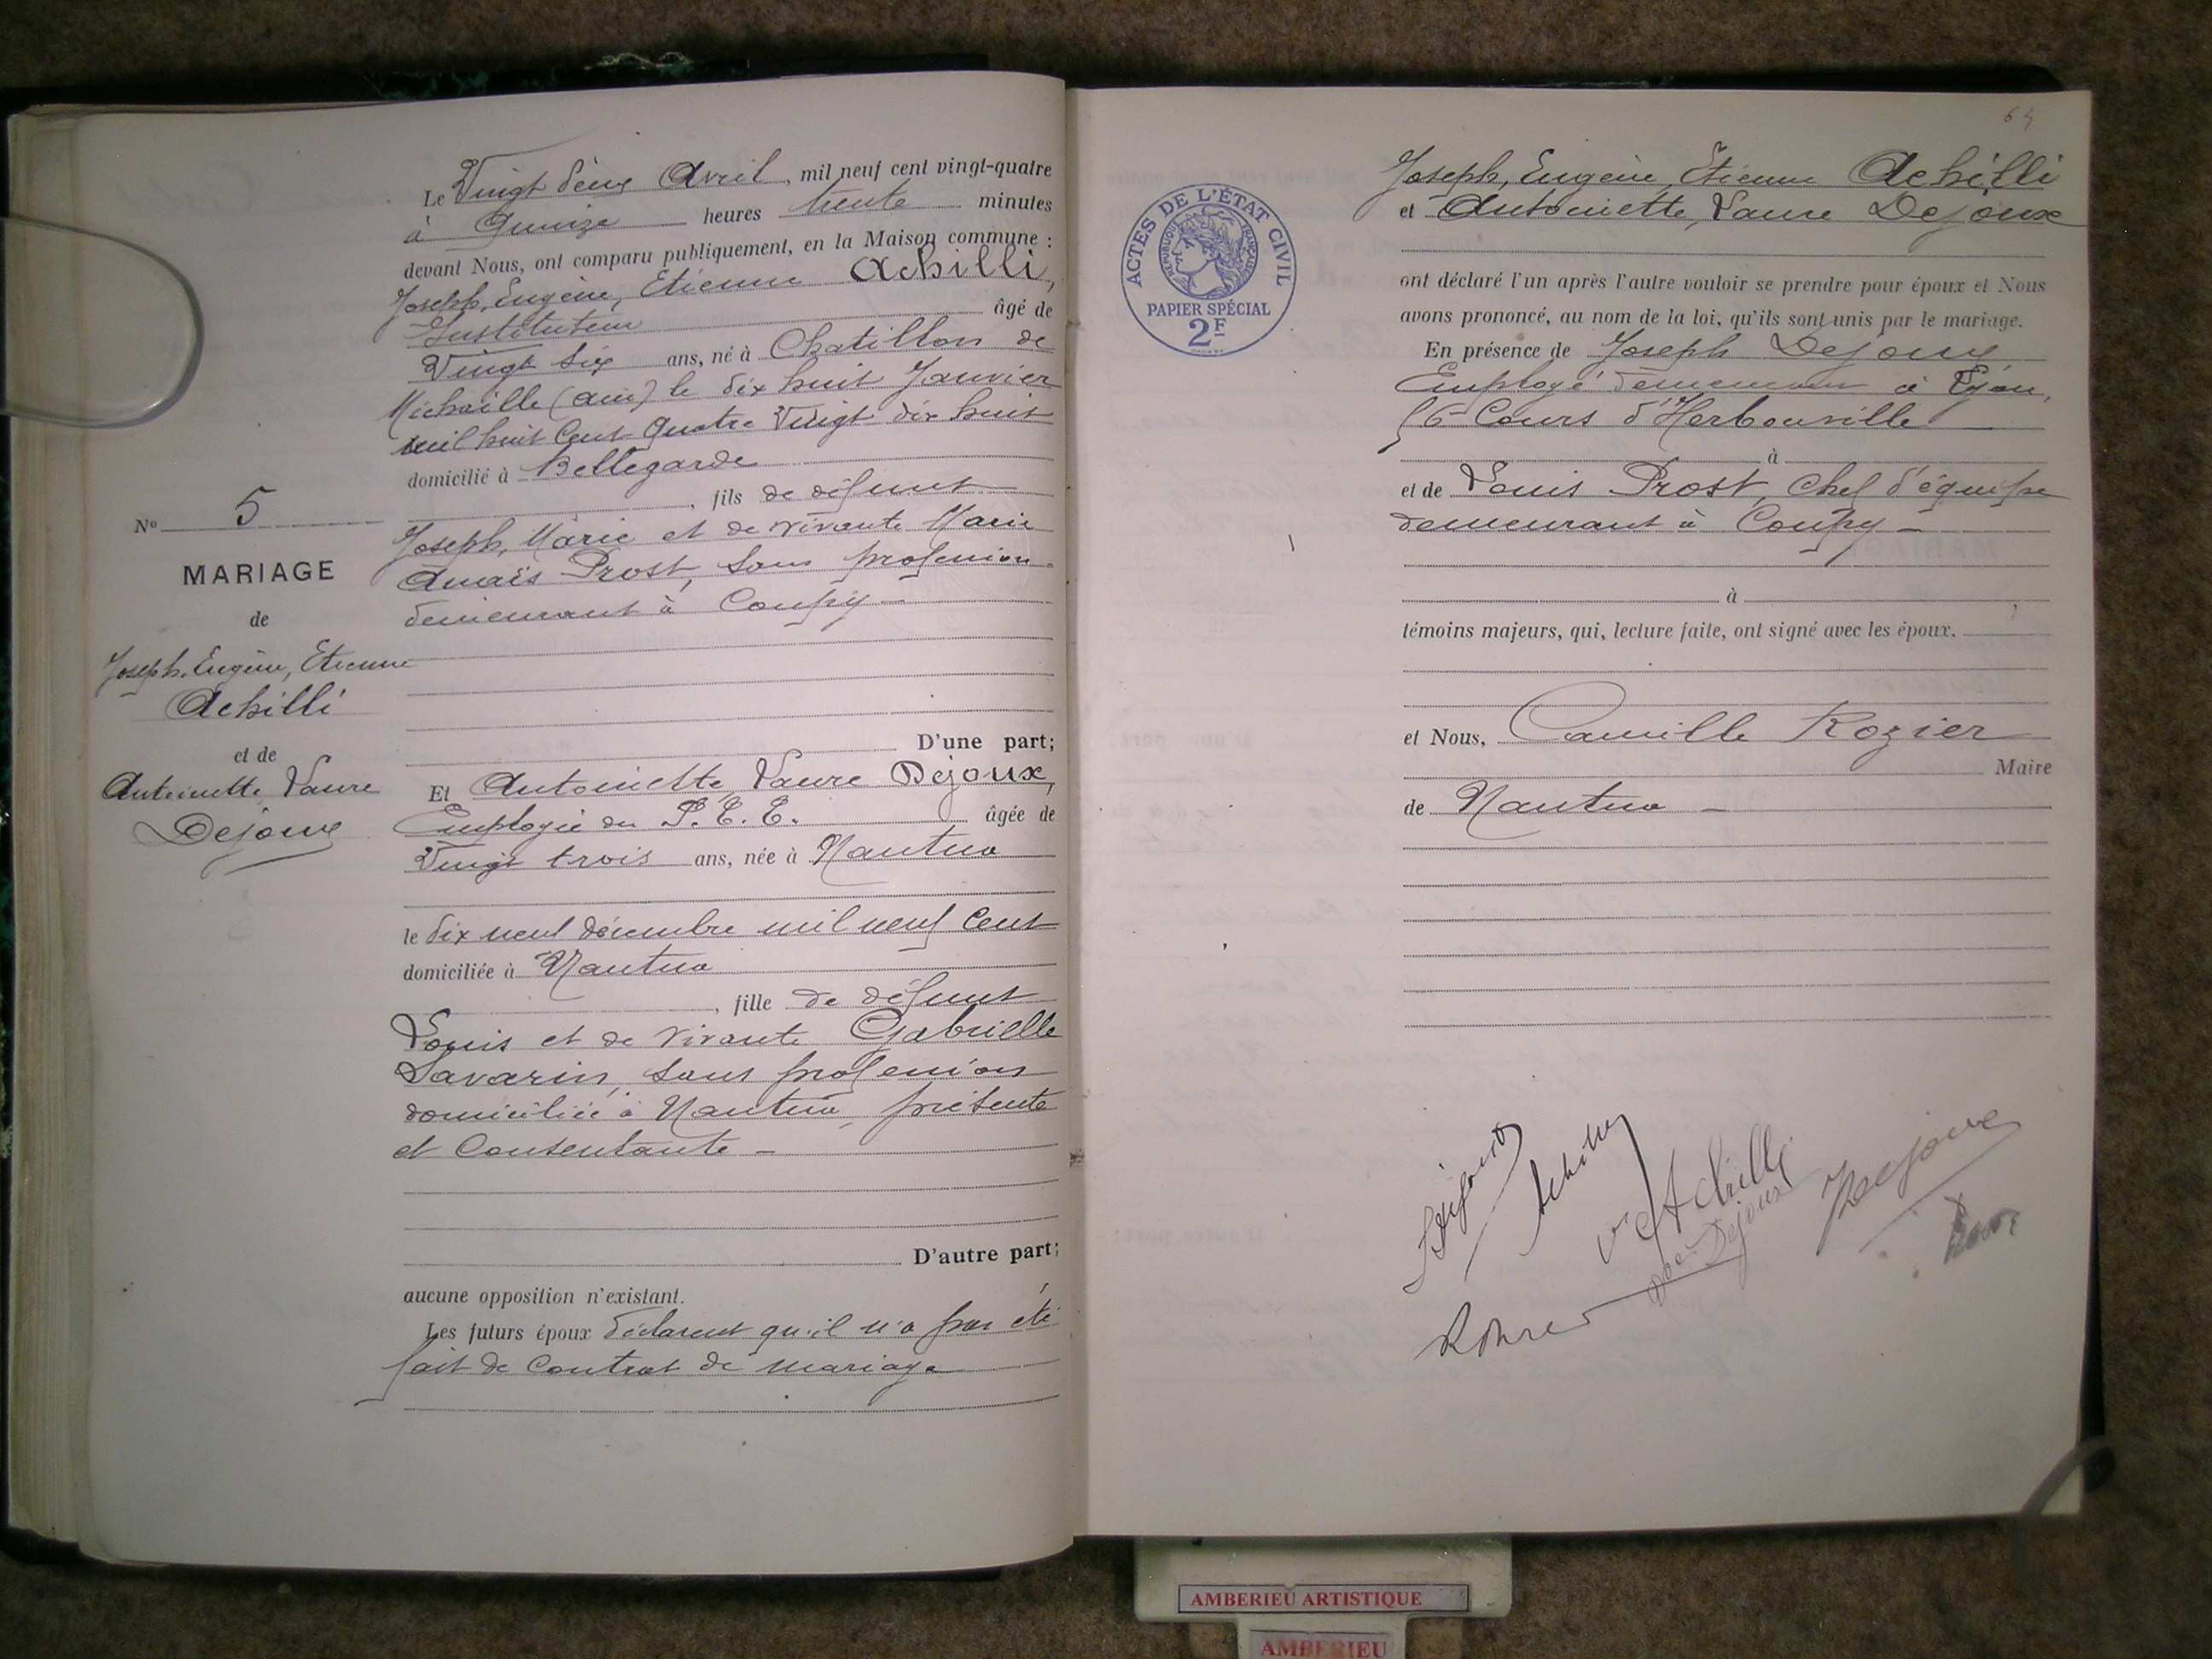 Le Vingt deux Avril, mil neuf cent vingt-quatre
à Quinze heures trente minutes
devant Nous, ont comparu publiquement, en la Maison commune :
Joseph, Eugène, Etienne Achilli,
Instituteur âgé de
Vingt Six ans, né à Chatillon de
Michaille (Ain) le dix huit Janvier
mil huit Cent Quatre Vingt dix huit
domicilié à Bellegarde
, fils de défunt
Joseph, Marie et de vivante Marie
Anaïs Prost, sans profession
demeurant à Coupy
No 5
MARIAGE
de
Joseph, Eugène, Etienne
Achilli
et de
Antoinette Laure
Dejoux
D'une part;
Et Antoinette, Laure Dejoux,
Employée du P.T.T. âgée de
Vingt trois ans, née à Nantua
le dix neuf décembre mil neuf Cent
domiciliée à Nantua
, fille de défunt
Louis et de vivante Gabrielle
Savarin, sans profession
domiciliée à Nantua, présente
et Consentante -
D'autre part;
aucune opposition n'existant.
Les futurs époux déclarent qu'il n'a pas été
fait de Contrat de mariage
64
ACTES DE L'ÉTAT CIVIL
RÉPUBLIQUE FRANÇAISE
PAPIER SPÉCIAL
2F
Joseph, Eugène, Etienne Achilli
et Antoinette, Laure Dejoux
ont déclaré l'un après l'autre vouloir se prendre pour époux et Nous
avons prononcé, au nom de la loi, qu'ils sont unis par le mariage.
En présence de Joseph Dejoux
Employé demeurant à Lyon,
Cours d'Herbouville
à
et de Louis Prost, Chef d'équipe
demeurant à Coupy -
à
témoins majeurs, qui, lecture faite, ont signé avec les époux.
et Nous, Camille Rozier
Maire
de Nantua -
Achilli
Achilli
Dejoux
Dejoux
AMBERIEU ARTISTIQUE
AMBERIEU